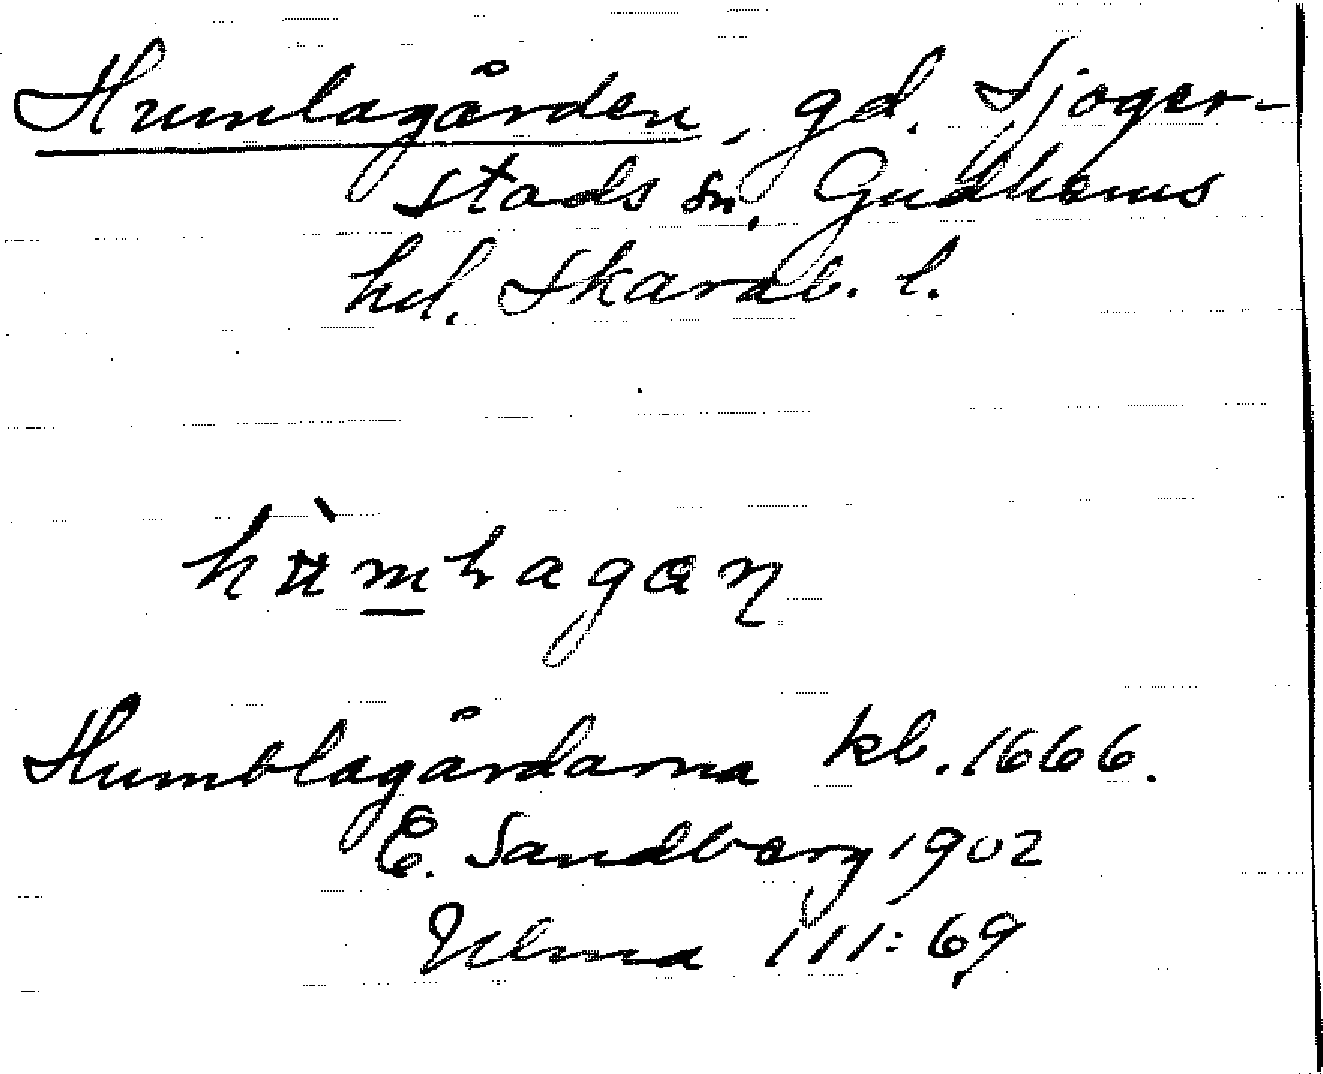 Humlagården, gd. Sjoger-
stads sn, Gudhems
hd. Skarab. l.
hùmhagan
Humblagårdarna kb. 1666.
E. Sandberg 1902
Ulma 111:69